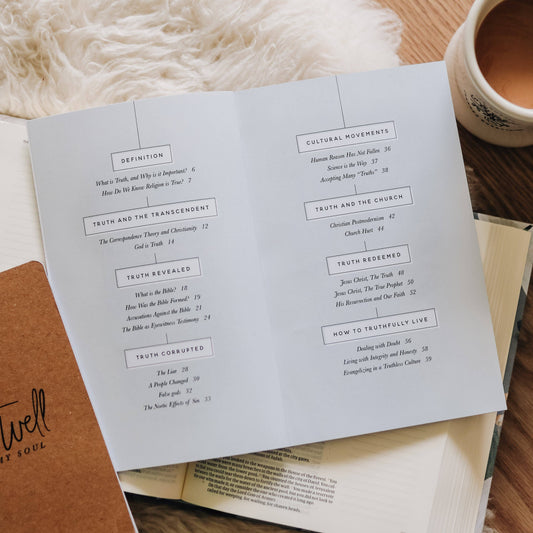 DEFINITION
What is Truth, and Why is it Important? 6
How Do We Know Religion is True? 7
TRUTH AND THE TRANSCENDENT
The Correspondence Theory and Christianity 12
God is Truth 14
TRUTH REVEALED
What is the Bible? 18
How Was the Bible Formed? 19
Accusations Against the Bible 21
The Bible as Eyewitness Testimony 24
TRUTH CORRUPTED
The Liar 28
A People Changed 30
False gods 32
The Noetic Effects of Sin 33
CULTURAL MOVEMENTS
Human Reason Has Not Fallen 36
Science is the Way 37
Accepting Many "Truths" 38
TRUTH AND THE CHURCH
Christian Postmodernism 42
Church Hurt 44
TRUTH REDEEMED
Jesus Christ, The Truth 48
Jesus Christ, The True Prophet 50
His Resurrection and Our Faith 52
HOW TO TRUTHFULLY LIVE
Dealing with Doubt 56
Living with Integrity and Honesty 58
Evangelizing in a Truthless Culture 59
twell
MY SOUL
looked to the weapons in the House of the Forest.